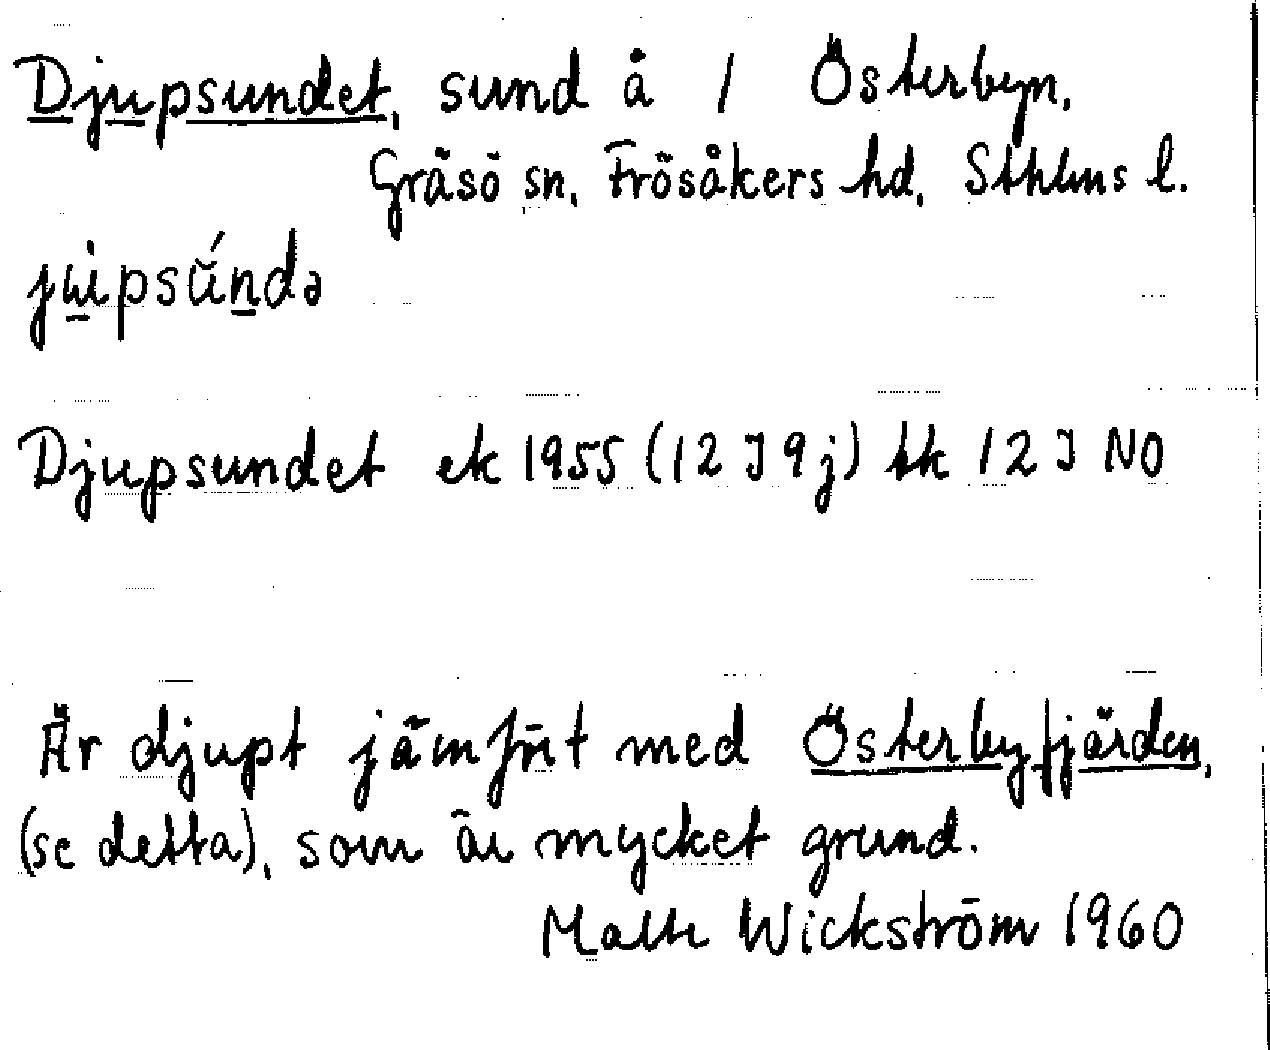 Djupsundet, sund å 1 Österbyn,
Gräsö sn, Frösåkers hd, Sthlms l.
Djupsundet ek 1955 (12 J 9 j) tk 12 J NO
Är djupt jämfört med Österbyfjärden,
(se detta), som är mycket grund.
Malte Wickström 1960